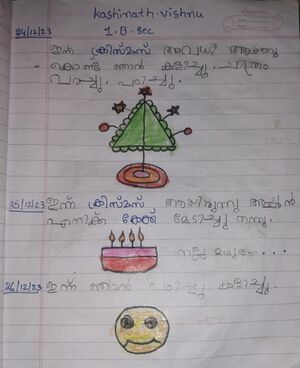 kashinath.vishnu
1.B.sec
24/12/23 ഇന്ന് ക്രിസ്മസ് അവധി ആയതു
കൊണ്ട് ഞാൻ കളിച്ചു. ചിത്രം
വരച്ചു. പഠിച്ചു.
25/12/23 ഇന്ന് ക്രിസ്മസ് ആയിരുന്നു അച്ഛൻ
എനിക്ക് കേക്ക് മേടിച്ചു തന്നു.
നല്ല മധുരം...
26/12/23 ഇന്ന് ഞാൻ പഠിച്ചു. കളിച്ചു.